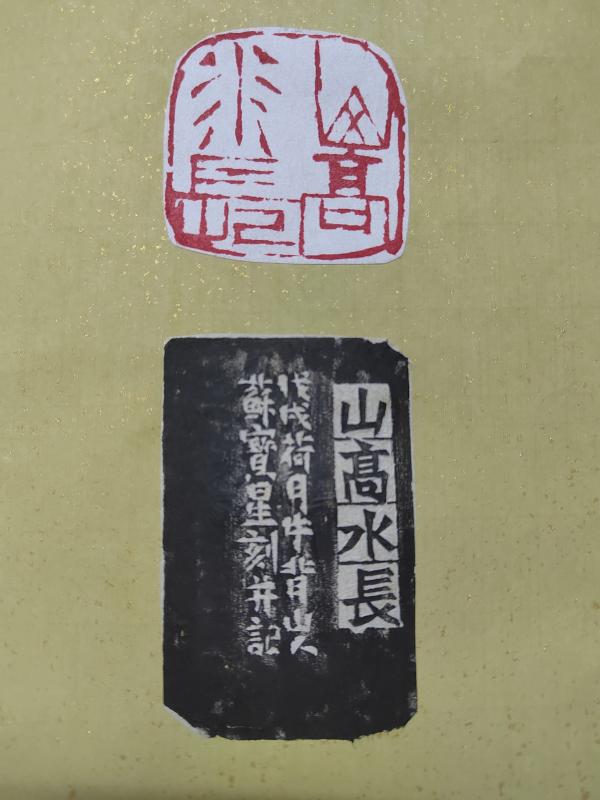 山高
水長
山高水長
戊戌荷月牛背山人
蘇寶星刻并記